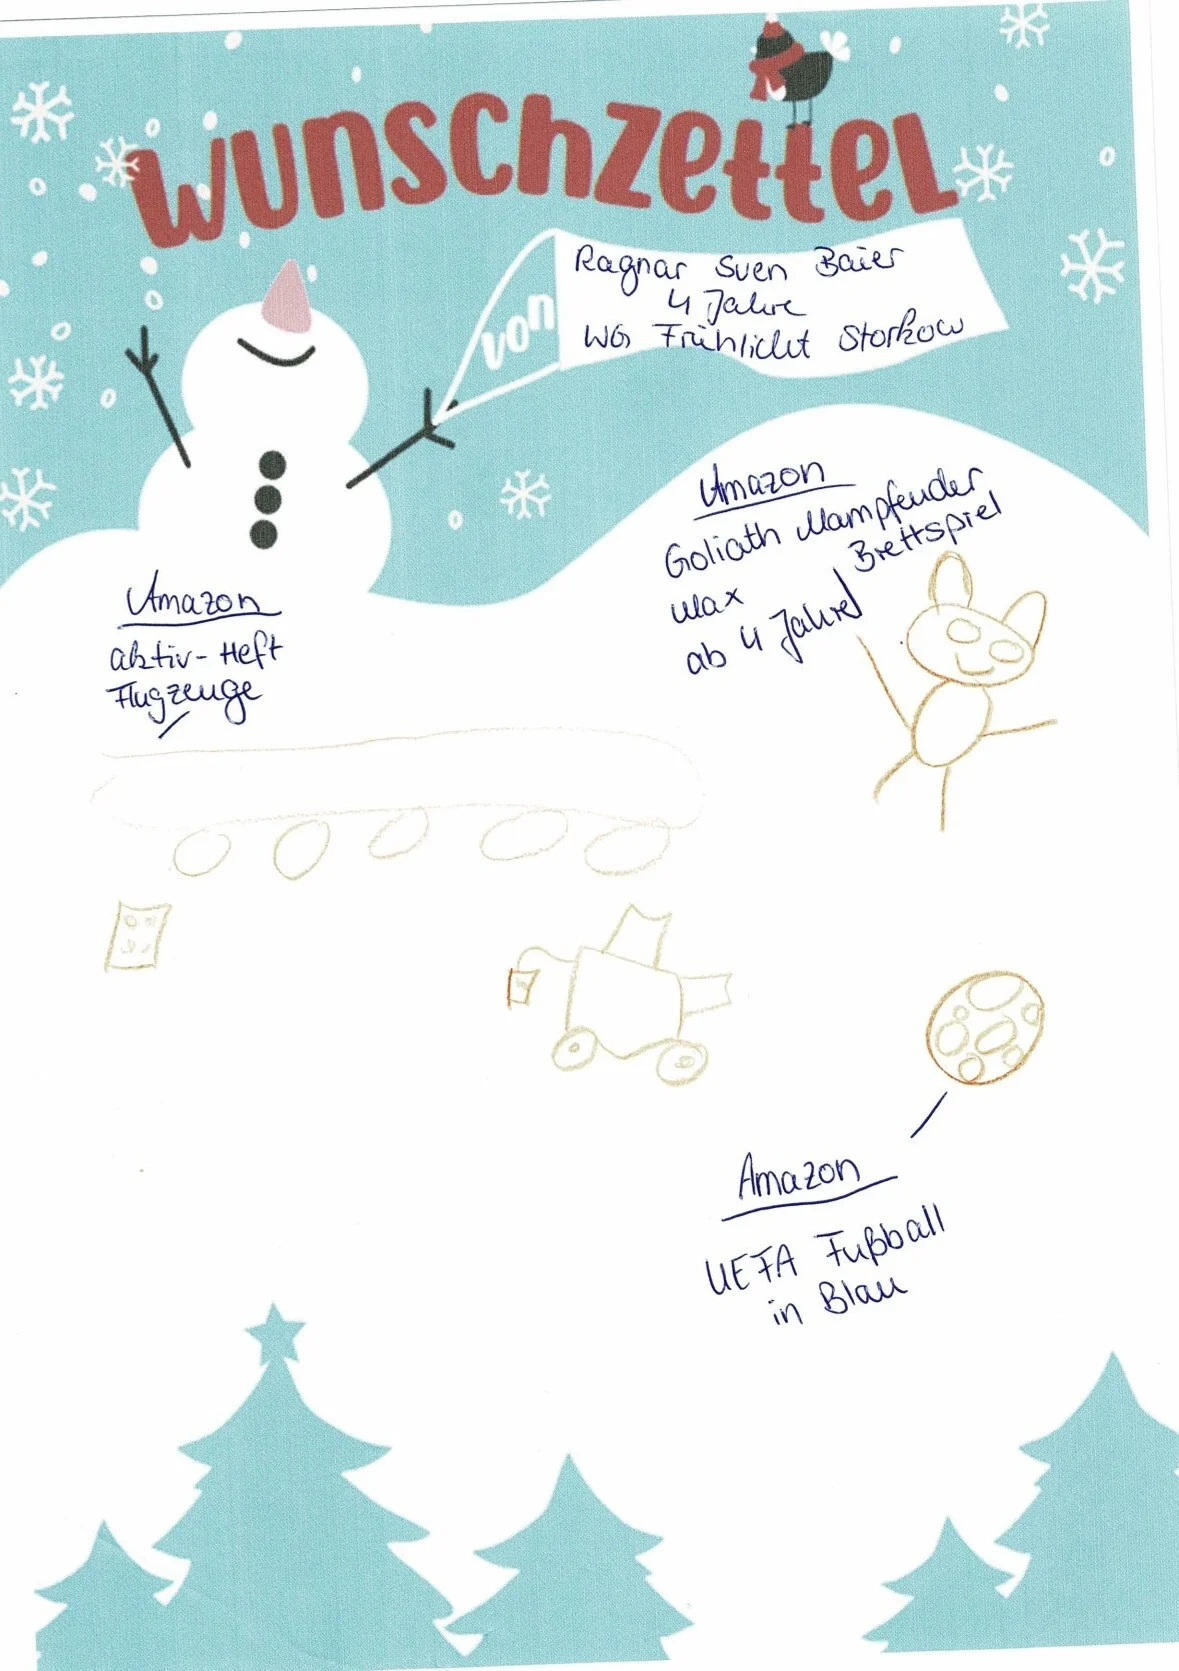 WUNSCHZETTEL
von
Ragnar Sven Baier
4 Jahre
WG Frühlicht Storkow
Amazon
Goliath Mampfender
Brettspiel
Max
ab 4 Jahre
Amazon
aktiv-Heft
Flugzeuge
Amazon
UEFA Fußball
in Blau